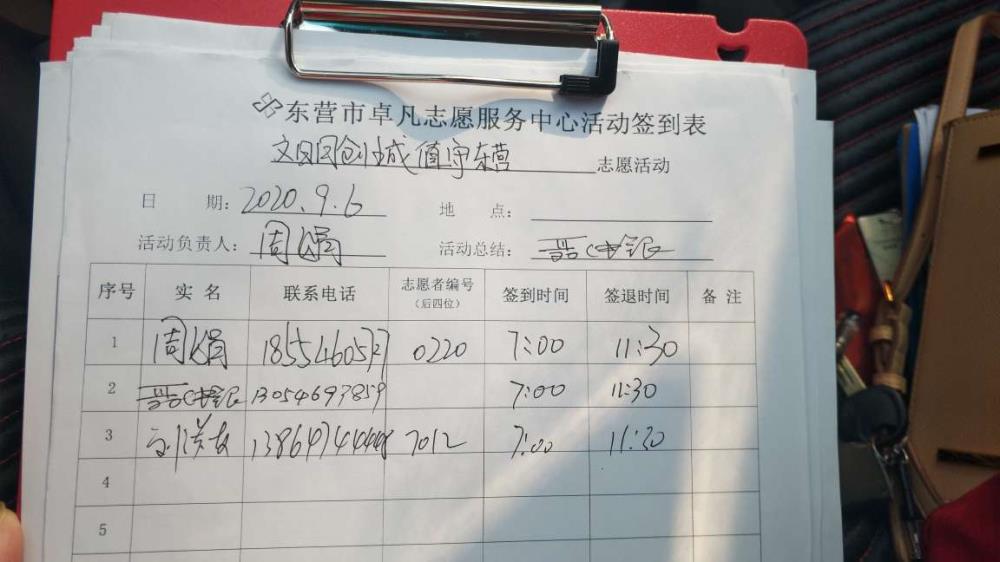 东营市卓凡志愿服务中心活动签到表
创城值守东营 志愿活动
日 期: 2020.9.6 地 点:
活动负责人: 周娟 活动总结:
序号 实 名 联系电话 志愿者编号 (后四位) 签到时间 签退时间 备 注
1 周娟 0220 7:00 11:30
2 13054693859 7:00 11:30
3 7012 7:00 11:30
4
5